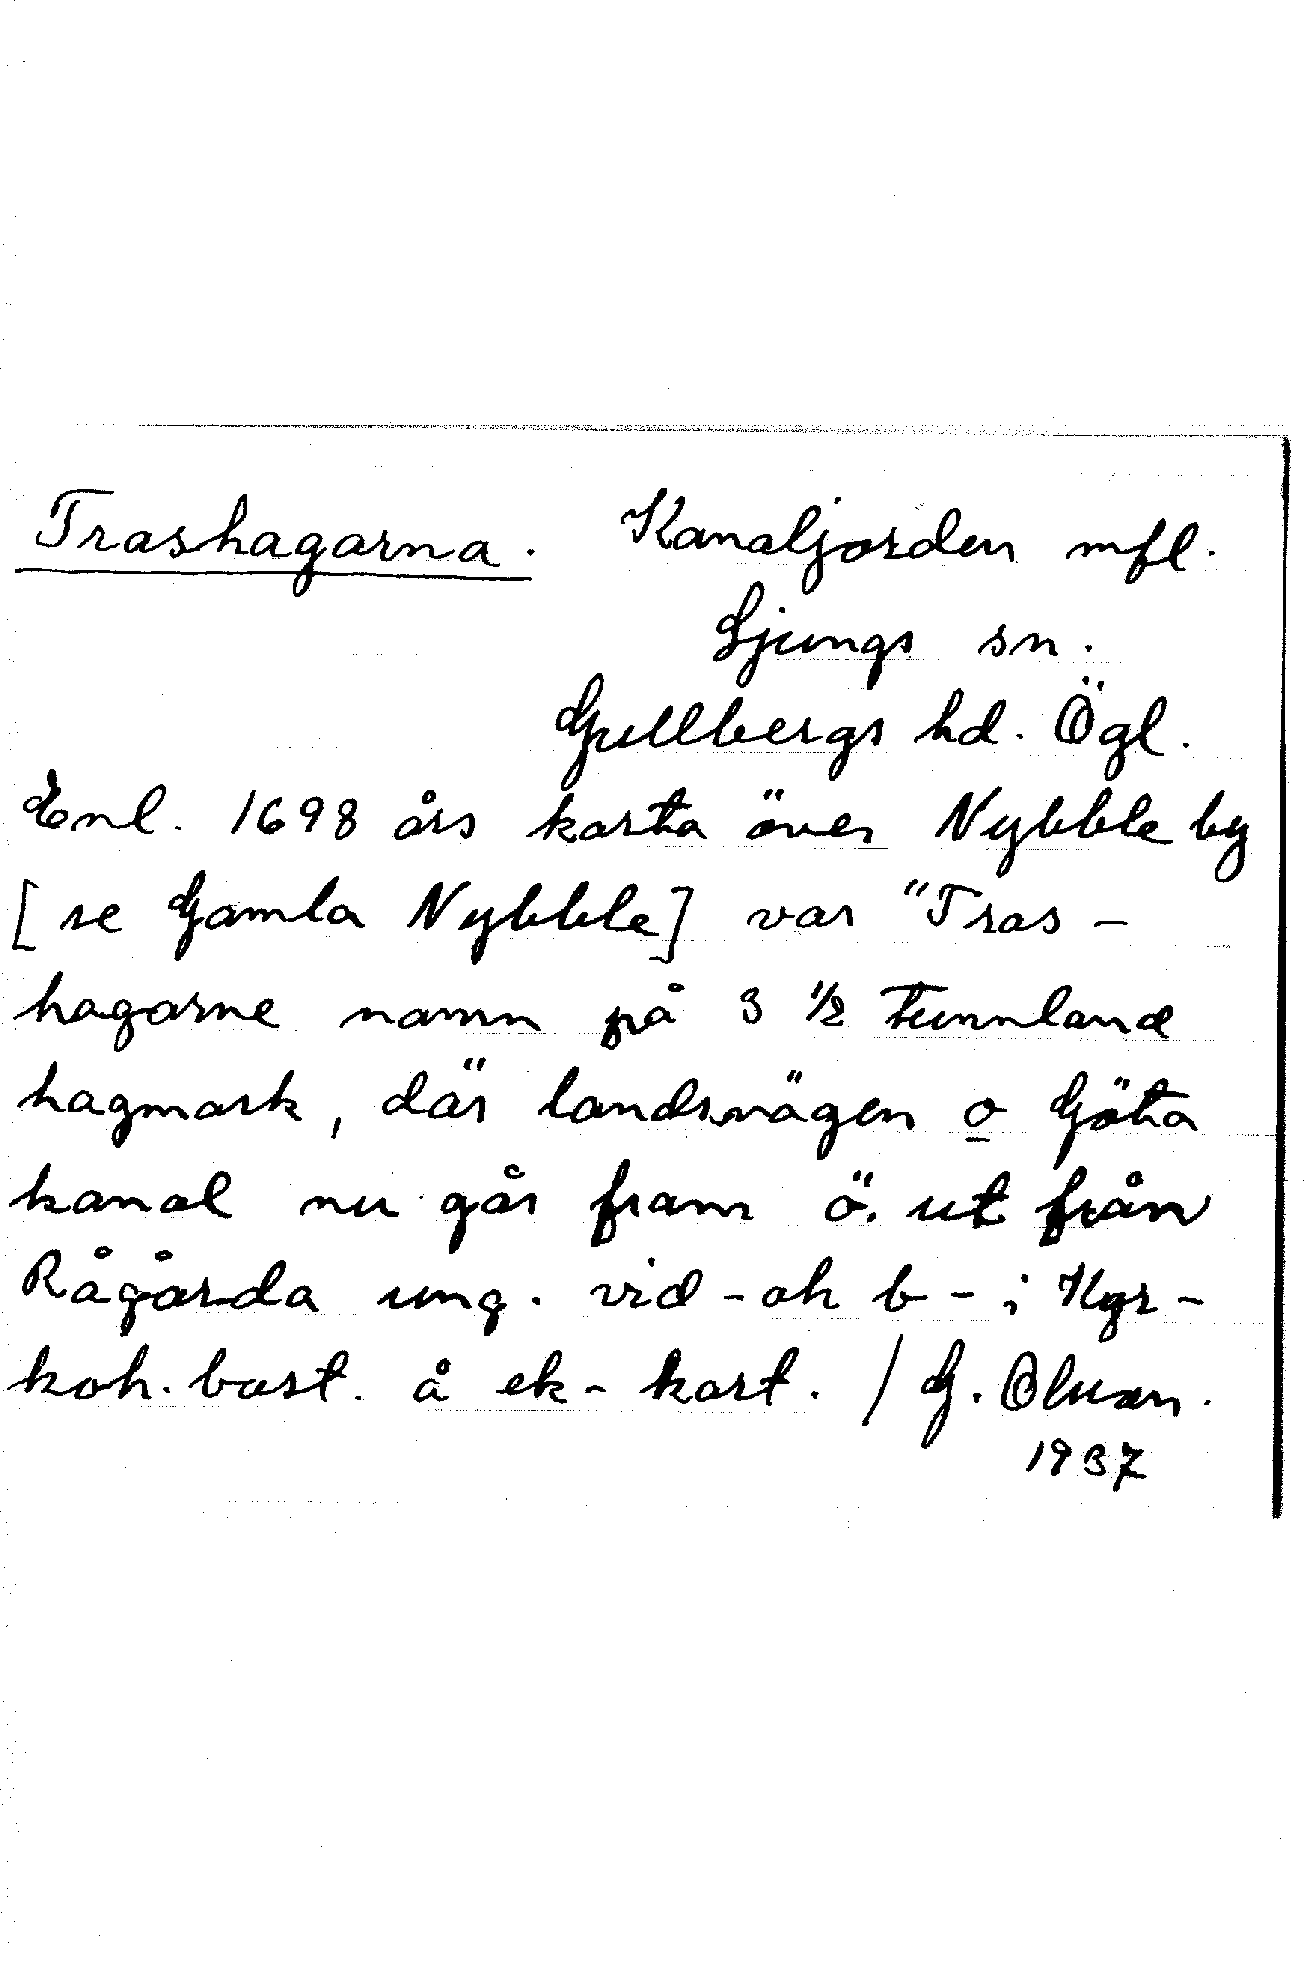 Trashagarna. Kanaljorden mfl.
Ljungs sn.
Gullbergs hd. Ögl.
Enl. 1698 års karta över Nybble by
[se Gamla Nybble] var "Tras-
hagarne namn på 3 1/2 tunnland
hagmark, där landsvägen o Göta
kanal nu går fram ö. ut från
Rågårda ung. vid -oh b- i Kyr-
koh. bost. å ek-kart. / G. Olsson.
1937